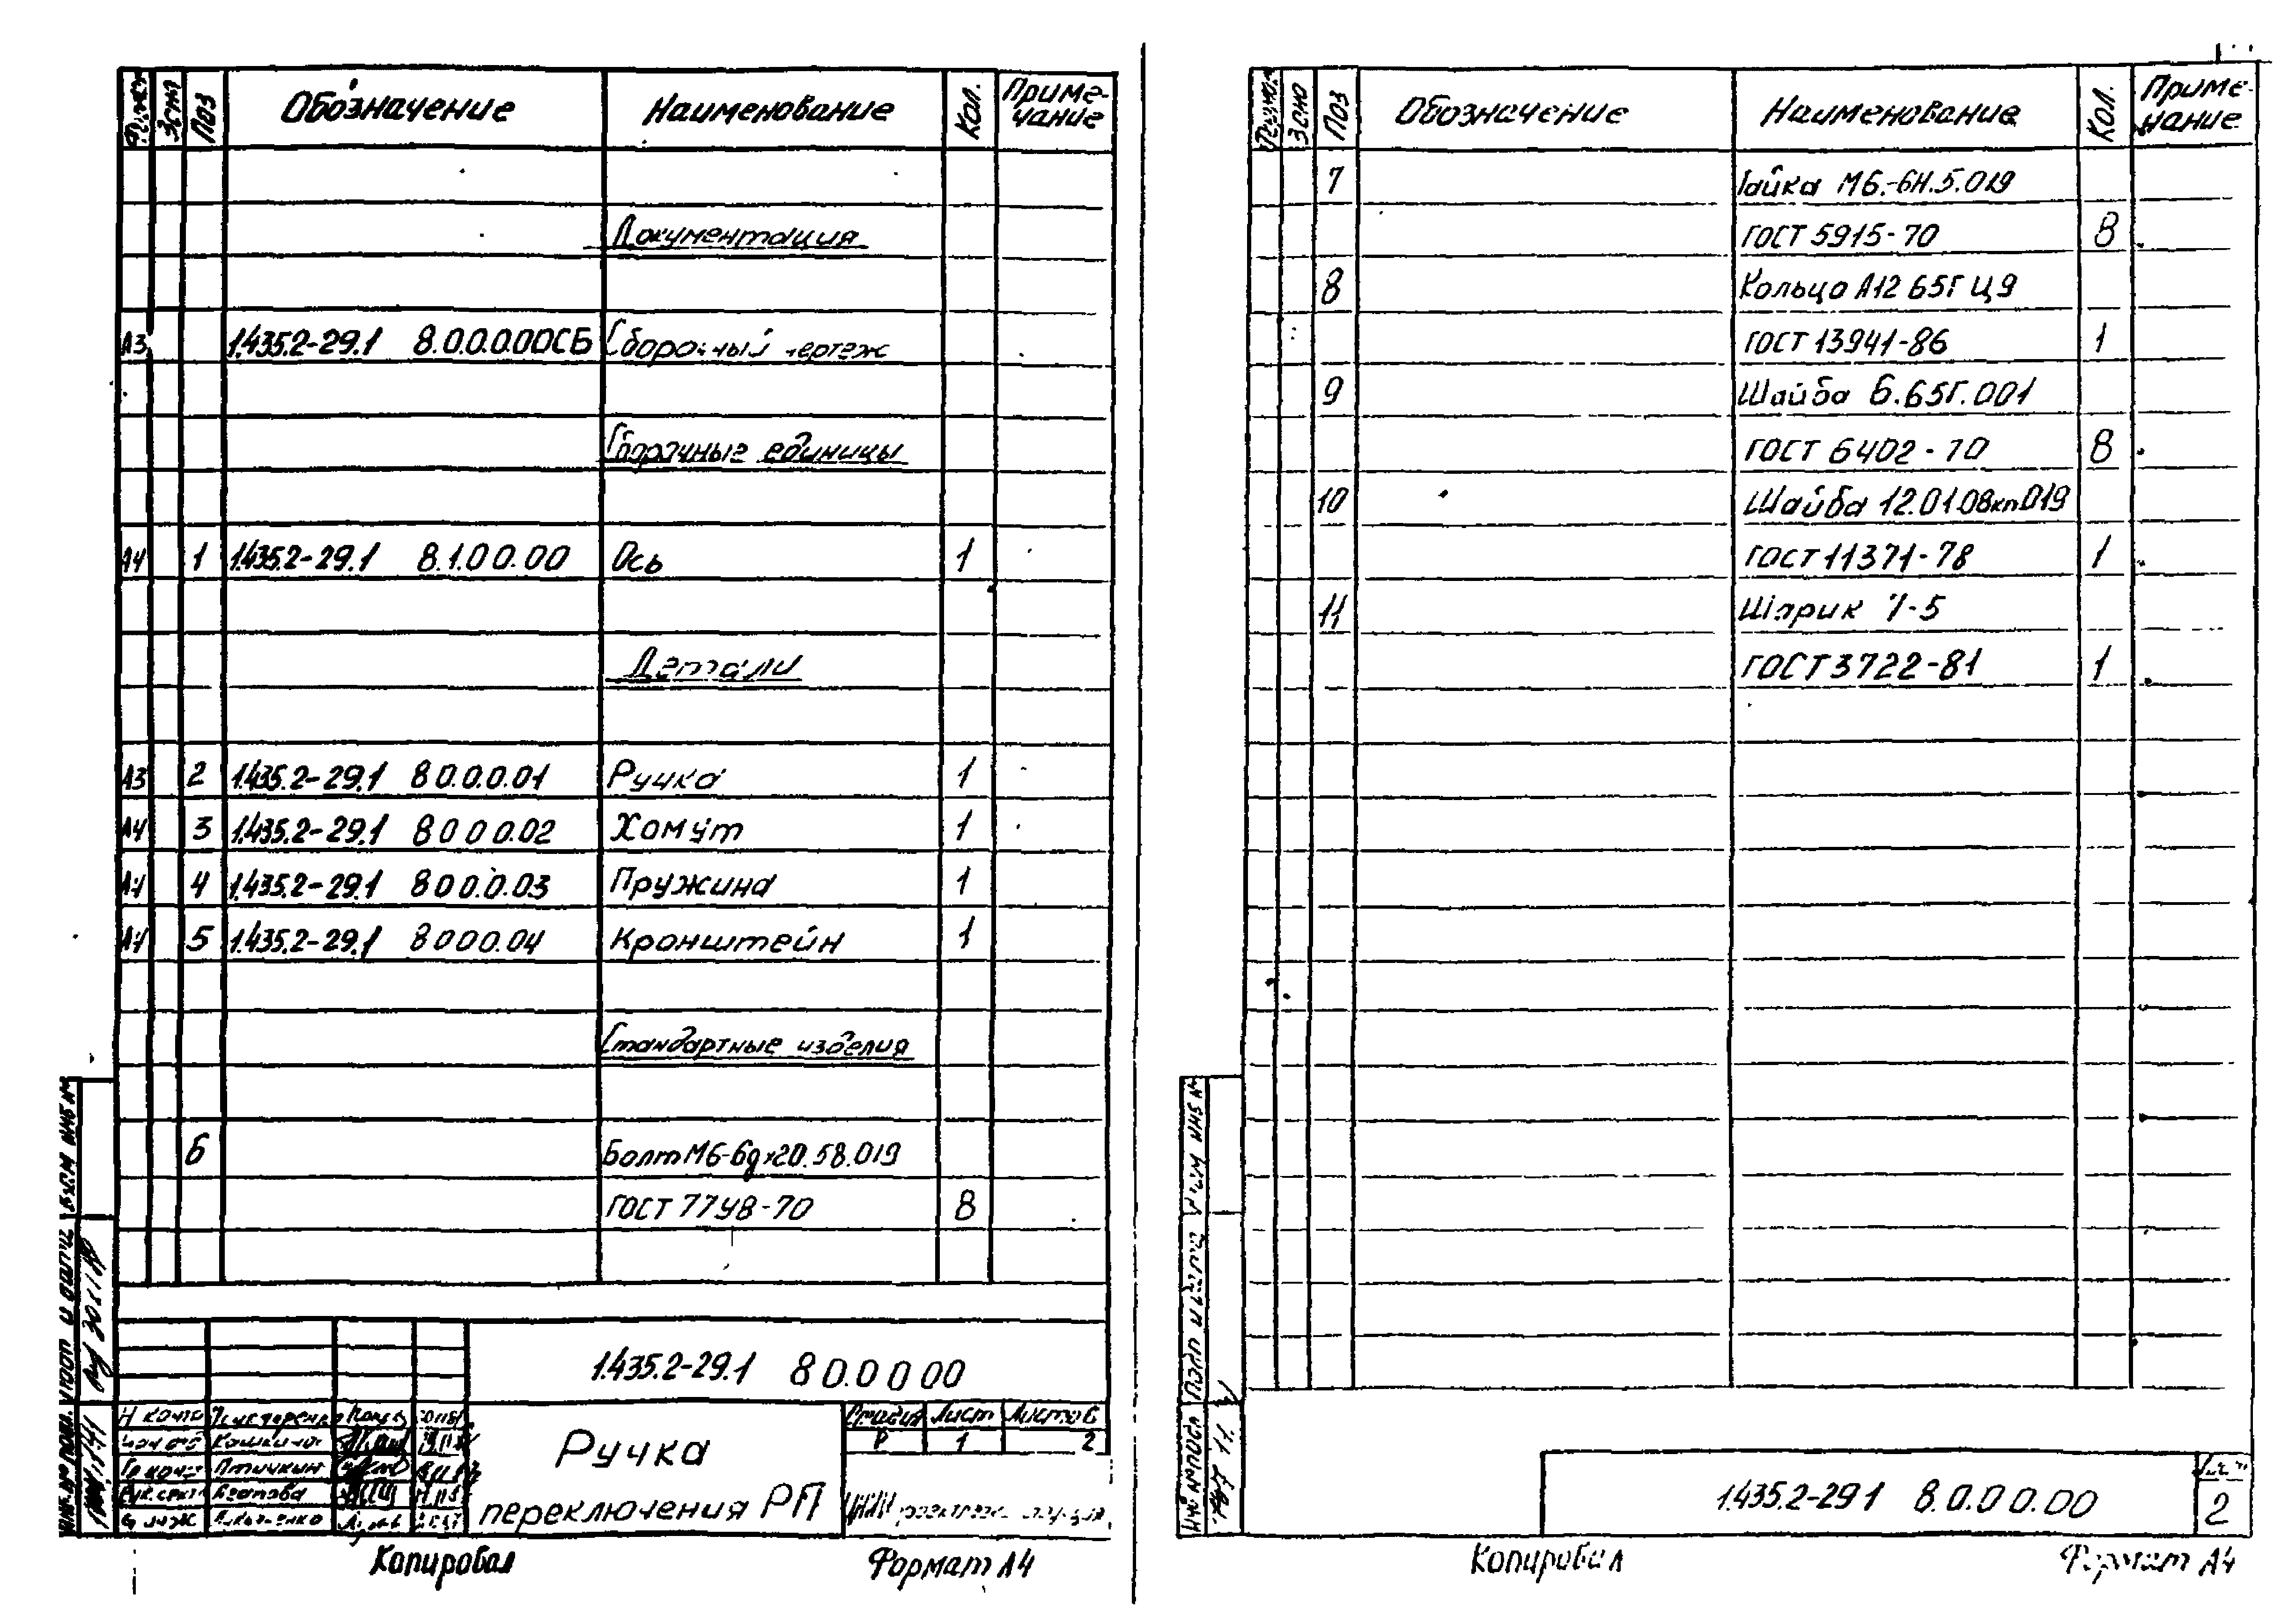 Формат Зона Поз Обозначение Наименование Кол. Приме-чание
Документация
А3 1.435.2-29.1 8.0.0.0.00СБ Сборочный чертеж
Сборочные единицы
А4 1 1.435.2-29.1 8.1.00.00 Ось 1
Детали
А3 2 1.435.2-29.1 8 0.0.0.01 Ручка 1
А4 3 1.435.2-29.1 8 0 0 0.02 Хомут 1
А4 4 1.435.2-29.1 8 0 0.0.03 Пружина 1
А4 5 1.435.2-29.1 8 0 0 0.04 Кронштейн 1
Стандартные изделия
6 Болт М6-6g×20.58.019
ГОСТ 7798-70 8
1.435.2-29.1 8 0.0 0 00
Н конто
Стадия Лист Листов
Р 1 2
Ручка
переключения РП
Птичкин
Агатова
Копировал
Формат А4
Инв. № подл. Подп и дата Взам инв №
Формат Зона Поз Обозначение Наименование Кол. Приме-чание
7 Гайка М6.-6Н.5.019
ГОСТ 5915-70 8
8 Кольцо А12 65Г Ц9
ГОСТ 13941-86 1
9 Шайба 6.65Г.001
ГОСТ 6402-70 8
10 Шайба 12.01.08кп019
ГОСТ 11371-78 1
11 Шарик 7-5
ГОСТ 3722-81 1
Инв № подл Подп и дата Взам инв №
1.435.2-29 1 8.0.0 0.00
Лист
2
Копировал
Формат А4